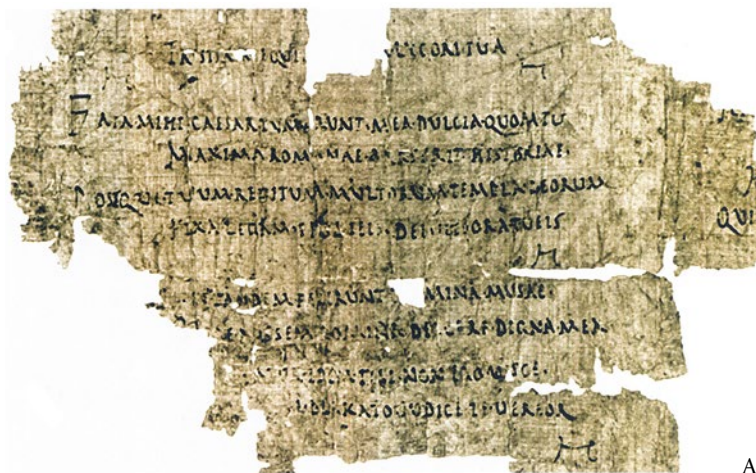 LYCORI·TVA
FATA·MIHI·CAESAR·TVM·ERVNT·MEA·DVLCIA·QVOM·TV
MAXIMA·ROMANAE·PARS·ERIT·HISTORIAE·
POSTQVE·TVVM·REDITVM·MVLTORVM·TEMPLA·DEORVM
FIXA·LEGAM·SPOLIEIS·DEIVITIORA·TVEIS
TANDEM·FECERVNT MINA·MVSAE·
POSSEM·DOMINA·DEICERE·DIGNA·MEA
TIBI·NON·EGO·VISCE·
KATO·IVDICE·TE·VEREOR
QVI
A